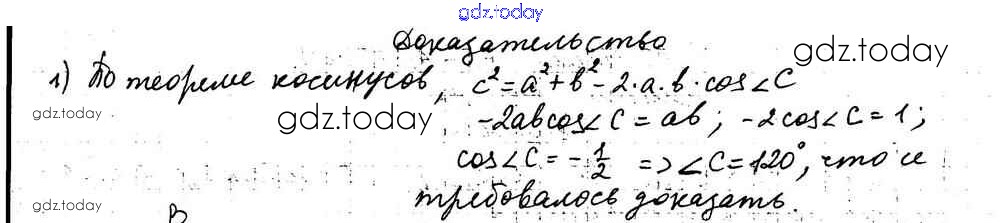 gdz.today
Доказательство
1) По теореме косинусов, c²=a²+b²-2·a·b·cos∠C
gdz.today
gdz.today
gdz.today
-2abcos∠C=ab; -2cos∠C=1;
cos∠C=-1/2 => ∠C=120°, что и
gdz.today
требовалось доказать.
gdz.today
B